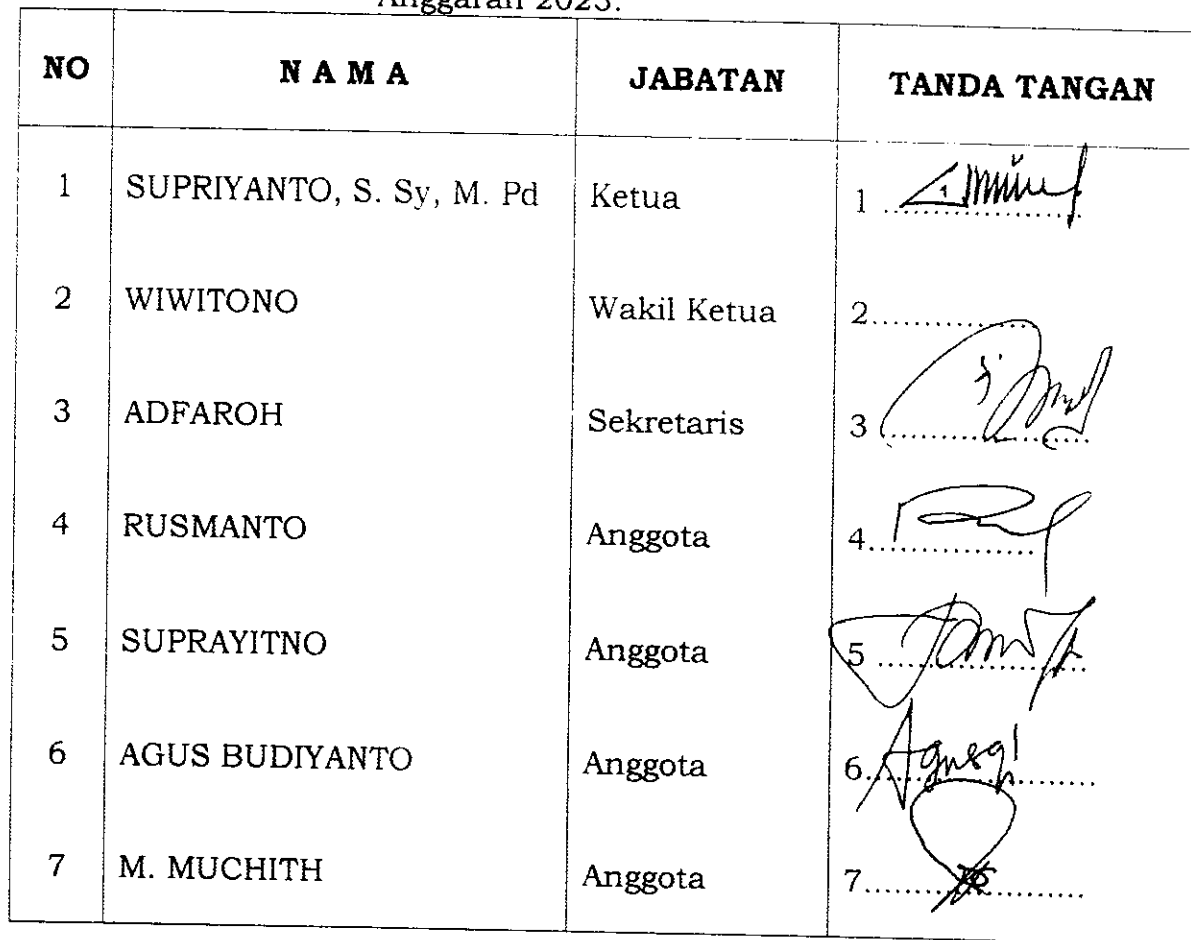 Anggaran 2023.
NO N A M A JABATAN TANDA TANGAN
1 SUPRIYANTO, S. Sy, M. Pd Ketua 1 ....................
2 WIWITONO Wakil Ketua 2................
3 ADFAROH Sekretaris 3 ....................
4 RUSMANTO Anggota 4................
5 SUPRAYITNO Anggota 5 ....................
6 AGUS BUDIYANTO Anggota 6....................
7 M. MUCHITH Anggota 7....................